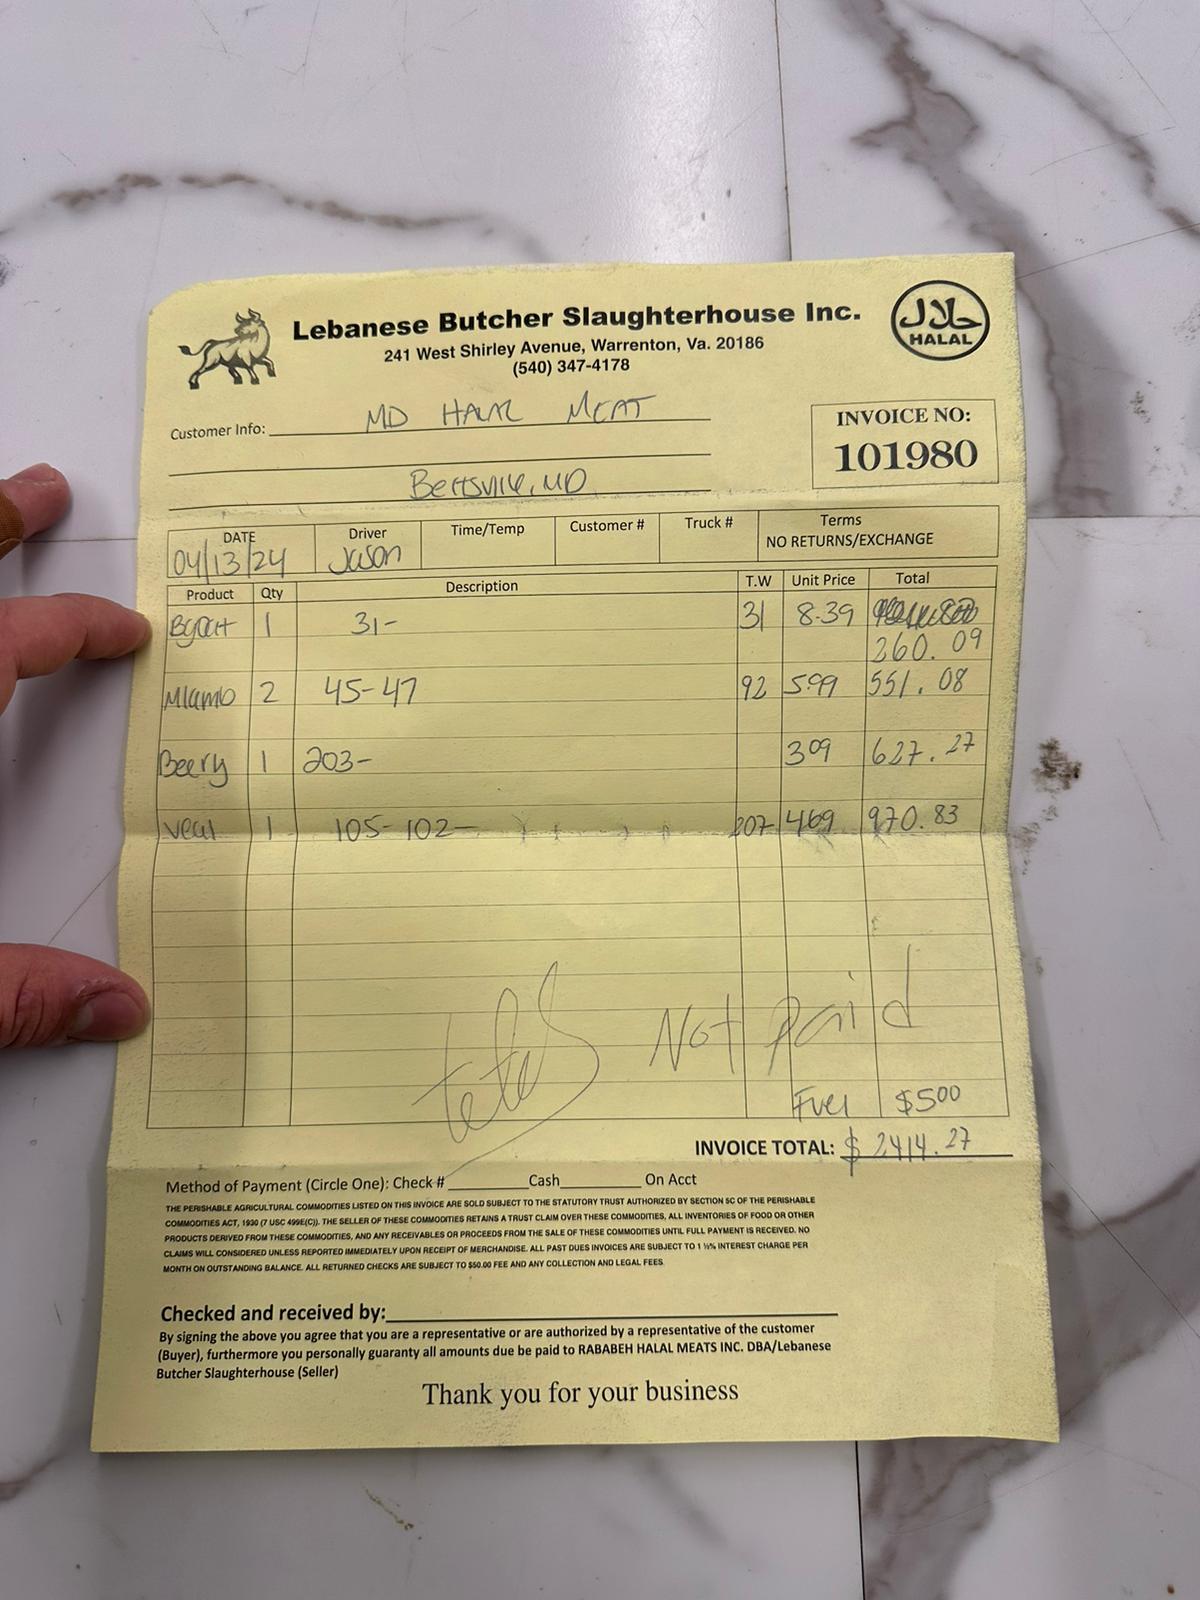 Lebanese Butcher Slaughterhouse Inc.
241 West Shirley Avenue, Warrenton, Va. 20186
(540) 347-4178
حلال
HALAL
Customer Info: MD HALAL MEAT
Beltsville, MD
INVOICE NO:
101980
DATE Driver Time/Temp Customer # Truck # Terms
04/13/24 Jason NO RETURNS/EXCHANGE
Product Qty Description T.W Unit Price Total
1 31- 31 8.39
260.09
Mlamb 2 45-47 92 5.99 551.08
1 203- 309 627.27
veal 1 105-102- 207 469 970.83
Not Paid
Fuel $500
INVOICE TOTAL: $ 2414.27
Method of Payment (Circle One): Check # Cash On Acct
THE PERISHABLE AGRICULTURAL COMMODITIES LISTED ON THIS INVOICE ARE SOLD SUBJECT TO THE STATUTORY TRUST AUTHORIZED BY SECTION 5C OF THE PERISHABLE
COMMODITIES ACT, 1930 (7 USC 499E(C)). THE SELLER OF THESE COMMODITIES RETAINS A TRUST CLAIM OVER THESE COMMODITIES, ALL INVENTORIES OF FOOD OR OTHER
PRODUCTS DERIVED FROM THESE COMMODITIES, AND ANY RECEIVABLES OR PROCEEDS FROM THE SALE OF THESE COMMODITIES UNTIL FULL PAYMENT IS RECEIVED. NO
CLAIMS WILL CONSIDERED UNLESS REPORTED IMMEDIATELY UPON RECEIPT OF MERCHANDISE. ALL PAST DUES INVOICES ARE SUBJECT TO 1 ½% INTEREST CHARGE PER
MONTH ON OUTSTANDING BALANCE. ALL RETURNED CHECKS ARE SUBJECT TO $50.00 FEE AND ANY COLLECTION AND LEGAL FEES.
Checked and received by:
By signing the above you agree that you are a representative or are authorized by a representative of the customer
(Buyer), furthermore you personally guaranty all amounts due be paid to RABABEH HALAL MEATS INC. DBA/Lebanese
Butcher Slaughterhouse (Seller)
Thank you for your business